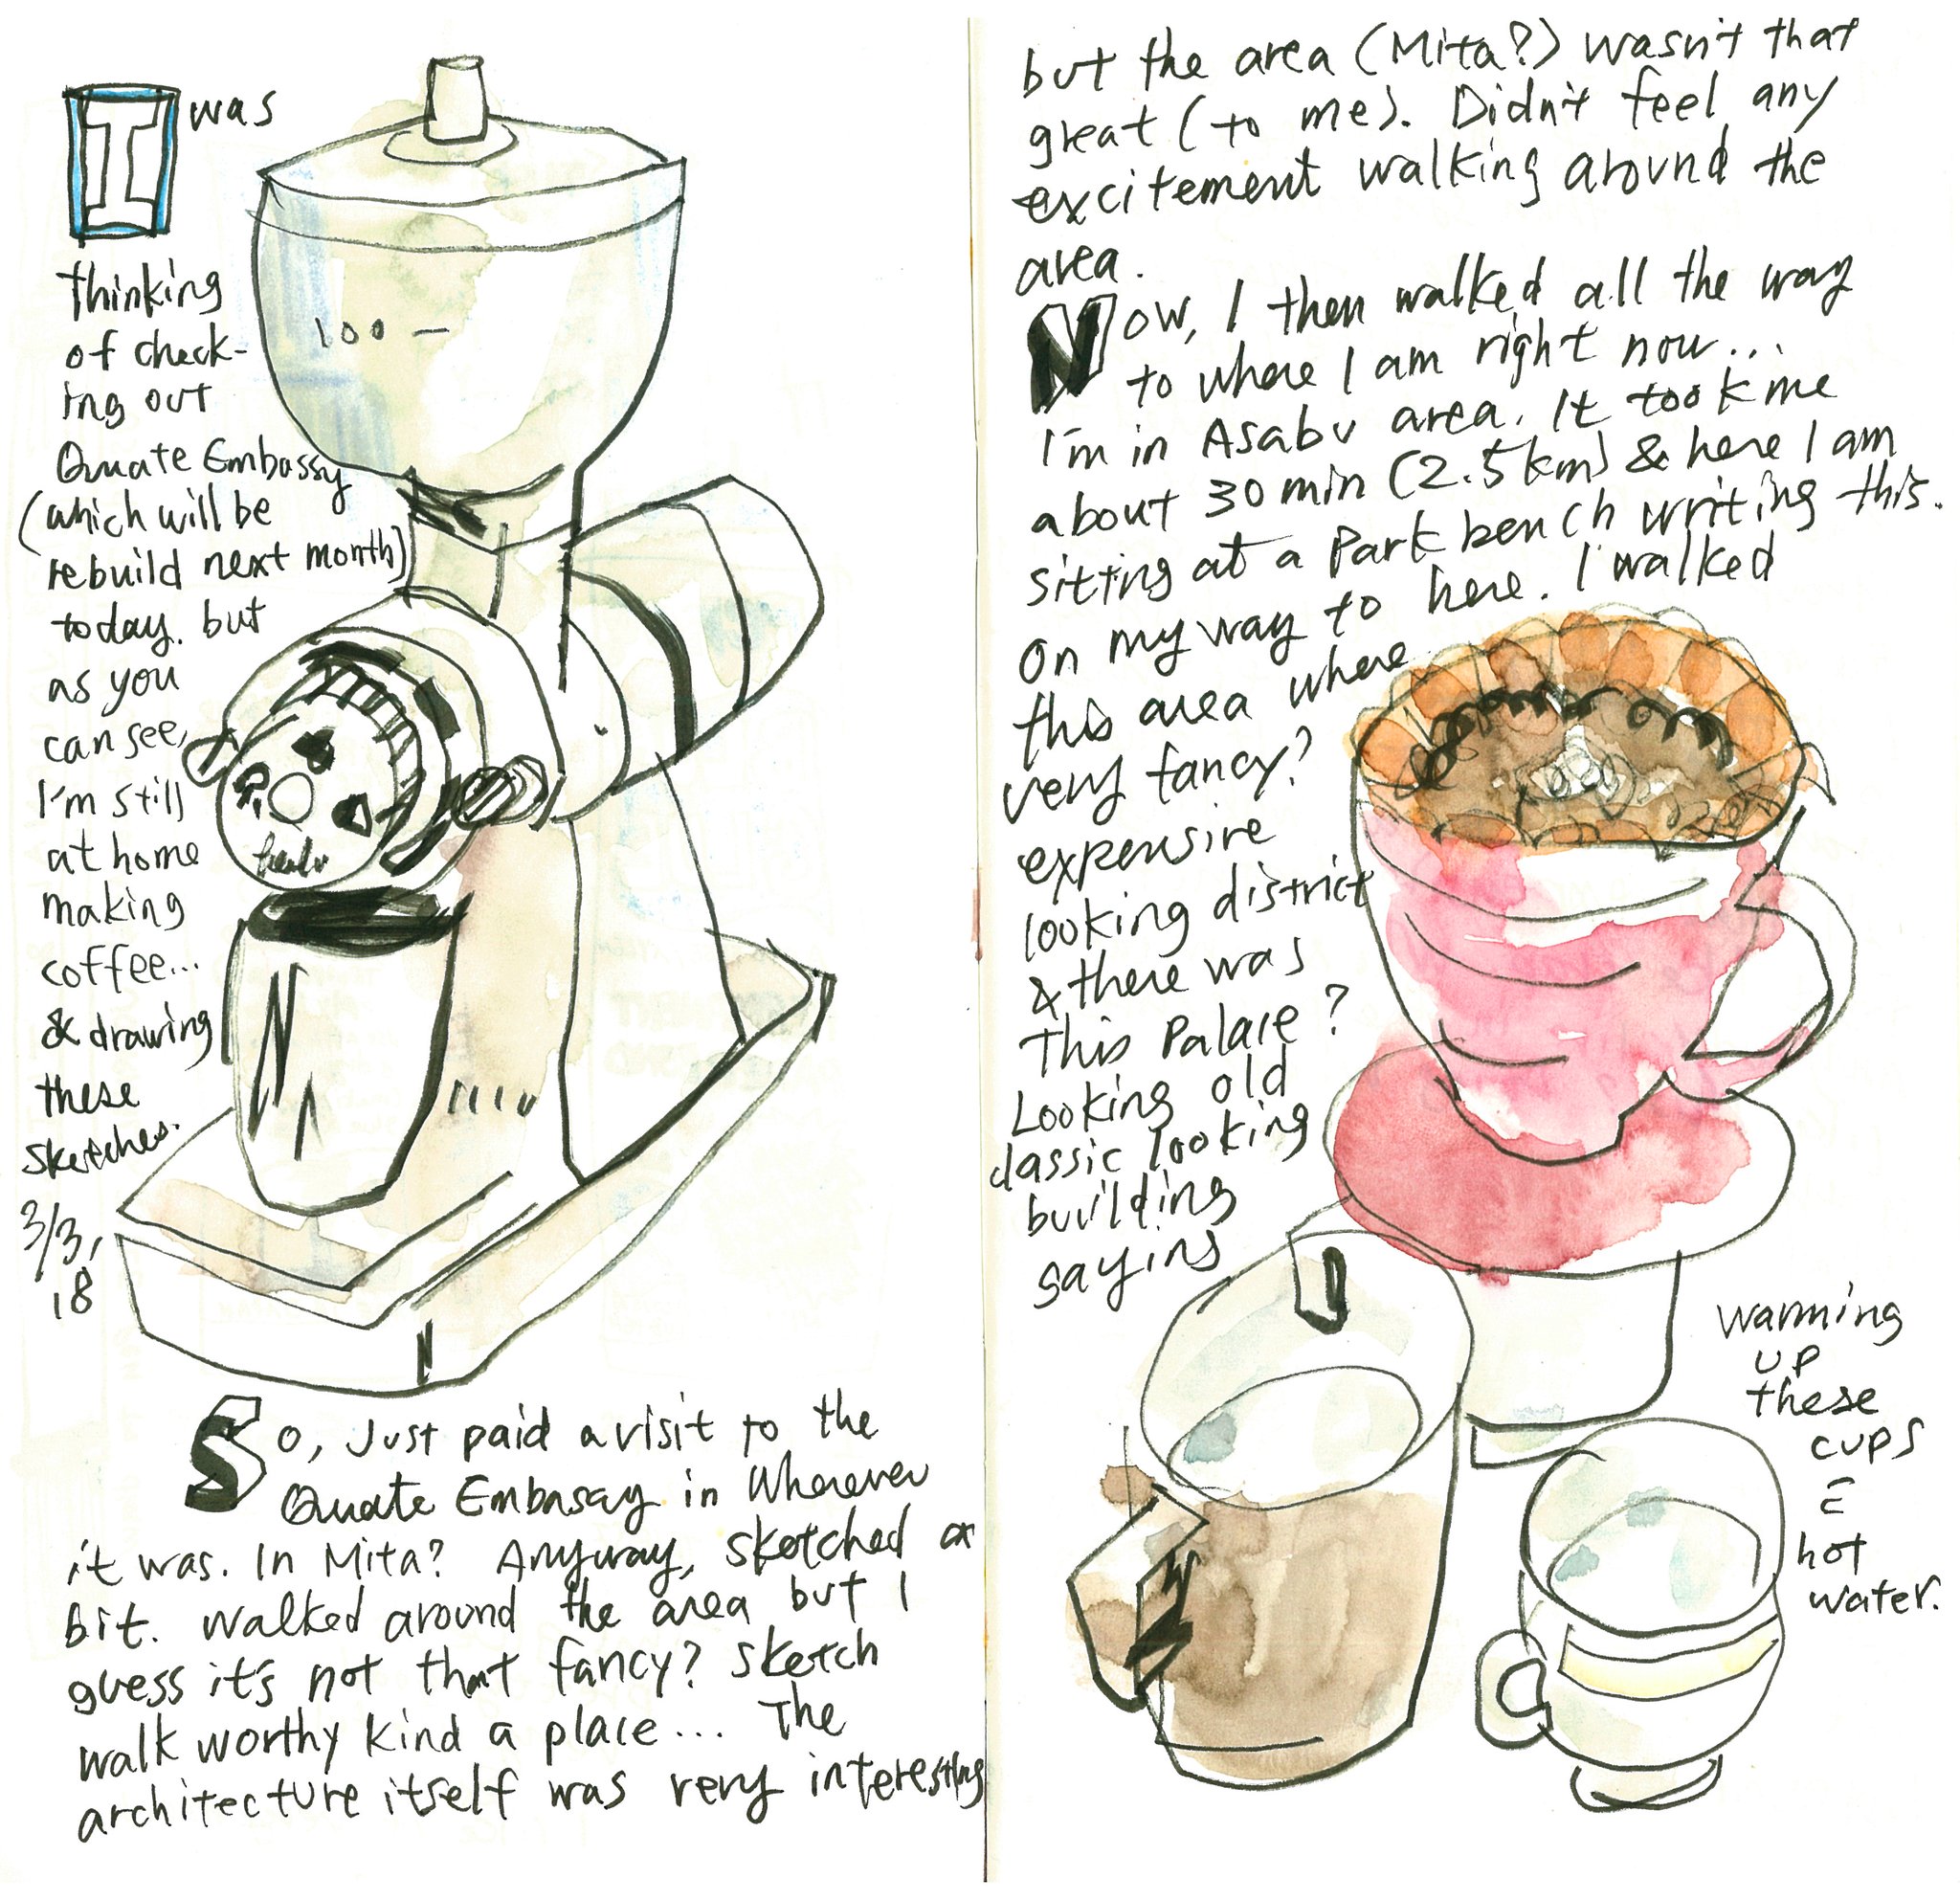 I was
thinking
of check-
ing out
Quate Embassy
(which will be
rebuild next month)
today. but
as you
can see,
I'm still
at home
making
coffee...
& drawing
these
sketches.
3/3,
18
100 —
So, Just paid a visit to the
Quate Embassay in Wherever
it was. In Mita? Anyway, sketched a
bit. walked around the area but I
guess it's not that fancy? sketch
walk worthy kind a place... The
architecture itself was very interesting
but the area (Mita?) wasn't that
great (to me). Didn't feel any
excitement walking around the
area.
Now, I then walked all the way
to where I am right now...
I'm in Asabu area. It took me
about 30 min (2.5km) & here I am
sitting at a Park bench writing this.
On my way to here. I walked
this area where
very fancy?
expensive
looking district
& there was
This Palace?
Looking old
classic looking
building
saying
warming
up
these
cups
c̄
hot
water.